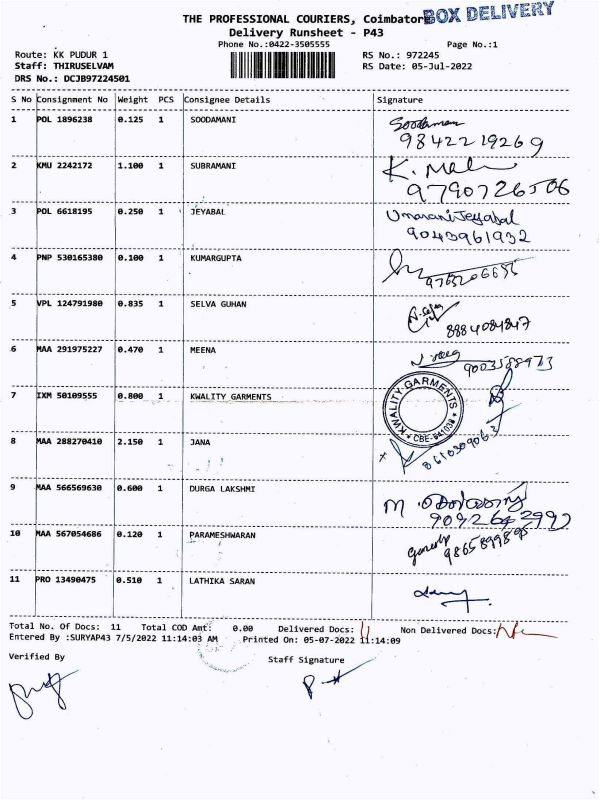 THE PROFESSIONAL COURIERS, Coimbatore
BOX DELIVERY
Delivery Runsheet - P43
Phone No.:0422-3505555
Page No.:1
Route: KK PUDUR 1
RS No.: 972245
Staff: THIRUSELVAM
RS Date: 05-Jul-2022
DRS No.: DCJB97224501
S No Consignment No Weight PCS Consignee Details Signature
1 POL 1896238 0.125 1 SOODAMANI Soodamani
9842219269
2 KMU 2242172 1.100 1 SUBRAMANI K. Mal
9790726506
3 POL 6618195 0.250 1 JEYABAL Umarani Jeyabal
9043961932
4 PNP 530165380 0.100 1 KUMARGUPTA
5 VPL 124791980 0.835 1 SELVA GUHAN
8884084847
6 MAA 291975227 0.470 1 MEENA
7 IXM 50109555 0.800 1 KWALITY GARMENTS
KWALITY GARMENTS
CBE-641038
8 MAA 288270410 2.150 1 JANA
8610309063
9 MAA 566569630 0.600 1 DURGA LAKSHMI
10 MAA 567054686 0.120 1 PARAMESHWARAN Ganesh
9865899895
11 PRO 13490475 0.510 1 LATHIKA SARAN
Total No. Of Docs: 11 Total COD Amt: 0.00 Delivered Docs: 11 Non Delivered Docs:
Entered By :SURYAP43 7/5/2022 11:14:03 AM Printed On: 05-07-2022 11:14:09
Verified By
Staff Signature